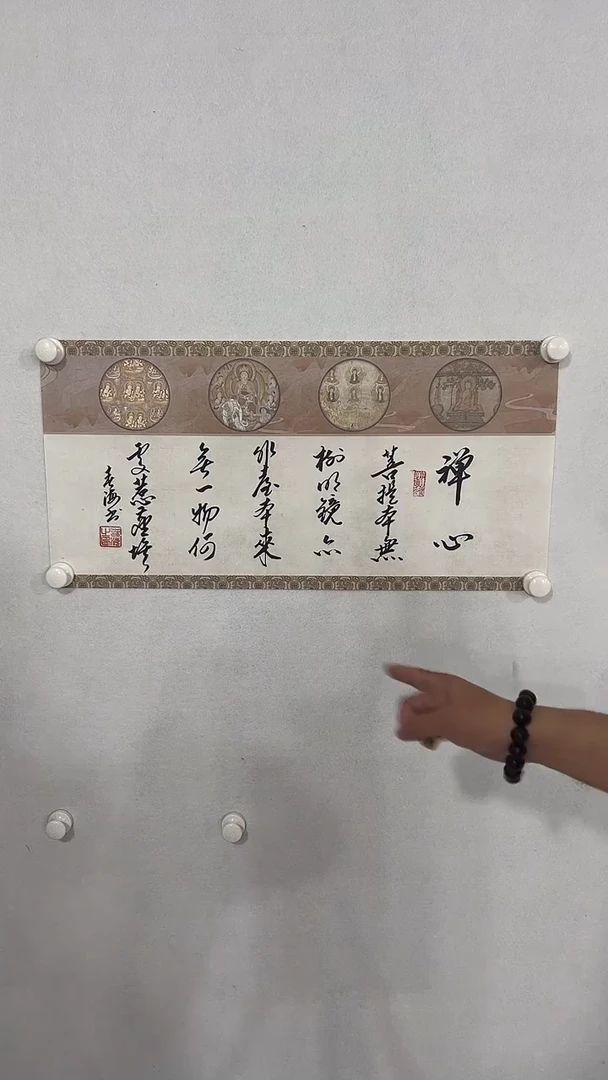 禅心
菩提本無
樹明鏡亦
非臺本來
無一物何
處惹塵埃
海书